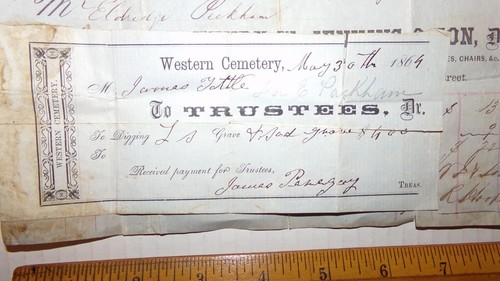 Mc Eldridge Peckham
& SON, D
ES, CHAIRS, &c.
treet.
WESTERN CEMETERY.
Western Cemetery, May 30th 1864
M James Tottle
E Peckham
To TRUSTEES, Dr.
To Digging L S Grave & Sod grave $4.00
To
Received payment for Trustees,
James
TREAS.
1 2 3 4 5 6 7